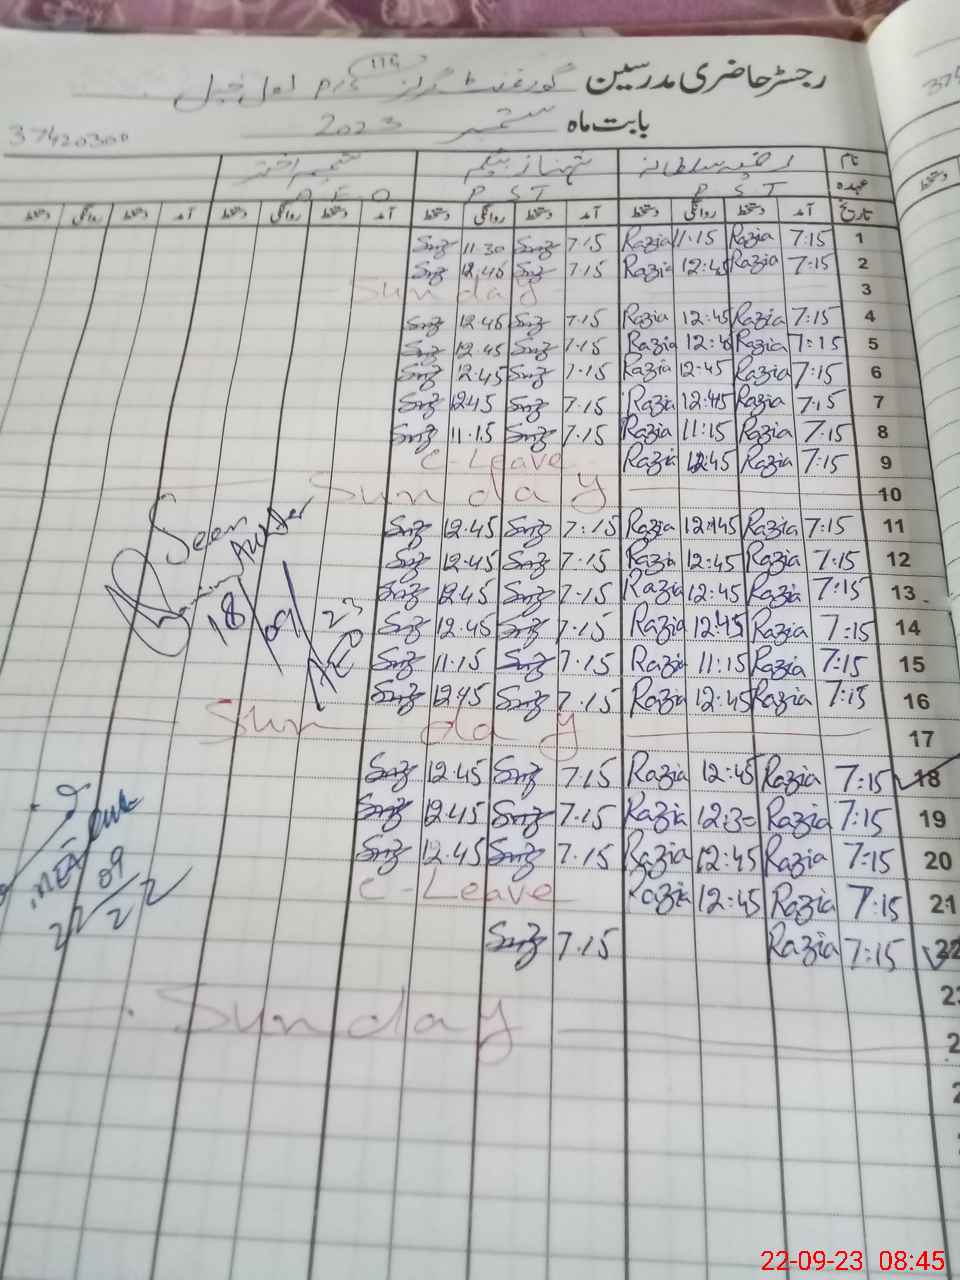 رجسٹر حاضری مدرسین گورنمنٹ گرلز
بابت ماہ ستمبر 2023
37420300
نام رضیہ سلطانہ شہناز بیگم شمیم اختر
عہدہ P S T P S T A E O
تاریخ آمد دستخط روانگی دستخط آمد دستخط روانگی دستخط آمد دستخط روانگی دستخط آمد دستخط روانگی دستخط
1 7:15 Razia 11:15 Razia 7.15 Snz 11.30 Snz
2 7:15 Razia 12:45 Razia 7.15 Snz 12.45 Snz
3 Sunday
4 7:15 Razia 12:45 Razia 7.15 Snz 12.45 Snz
5 7:15 Razia 12:45 Razia 7.15 Snz 12.45 Snz
6 7:15 Razia 12:45 Razia 7.15 Snz 12.45 Snz
7 7:15 Razia 12:45 Razia 7.15 Snz 12.45 Snz
8 7:15 Razia 11:15 Razia 7.15 Snz 11.15 Snz
9 7:15 Razia 12:45 Razia C-Leave
10 Sunday
11 7:15 Razia 12:45 Razia 7:15 Snz 12.45 Snz
12 7:15 Razia 12:45 Razia 7.15 Snz 12.45 Snz
13 7:15 Razia 12:45 Razia 7.15 Snz 12.45 Snz
14 7:15 Razia 12:45 Razia 7.15 Snz 12.45 Snz
15 7:15 Razia 11:15 Razia 7.15 Snz 11.15 Snz
16 7:15 Razia 12:45 Razia 7.15 Snz 12.45 Snz
Seen
18/09/23
AEO
17 Sunday
18 7:15 Razia 12:45 Razia 7.15 Snz 12.45 Snz
19 7:15 Razia 12:30 Razia 7.15 Snz 12.45 Snz
20 7:15 Razia 12:45 Razia 7.15 Snz 12.45 Snz
21 7:15 Razia 12:45 Razia C-Leave
22 7:15 Razia 7.15 Snz
MEA
09
22
23
Sunday
22-09-23 08:45